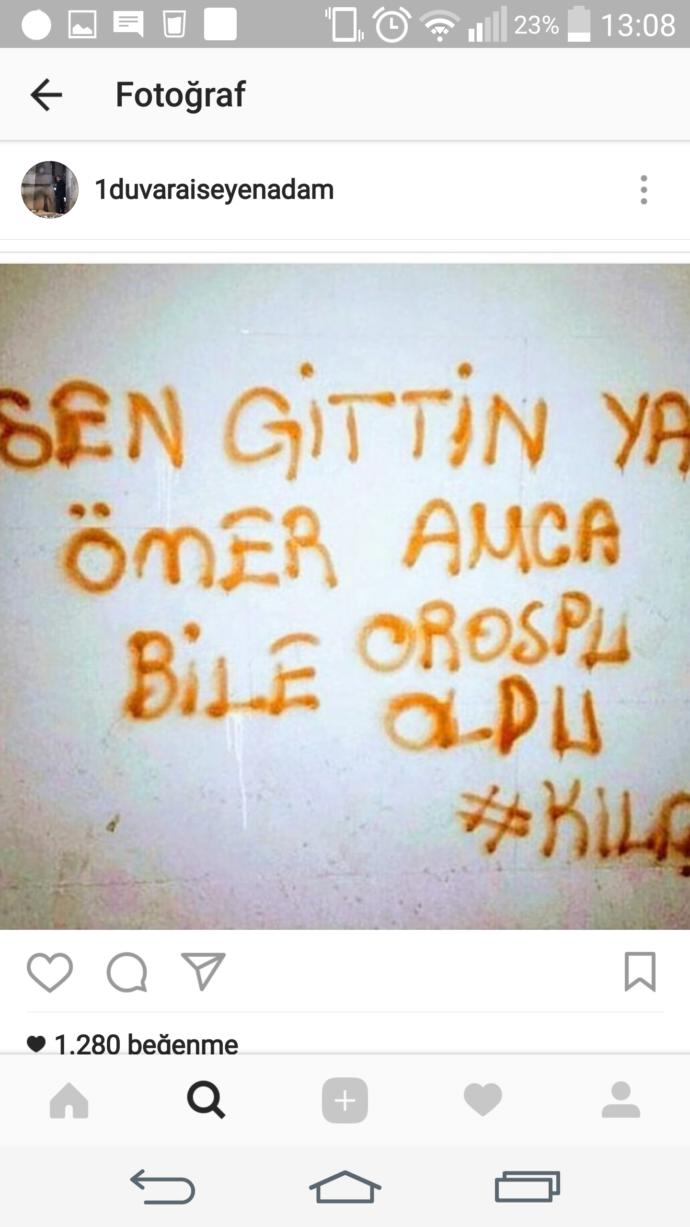 23% 13:08
Fotoğraf
1duvaraiseyenadam
SEN GİTTİN YA
ÖMER AMCA
BİLE OROSPU
OLDU
1.280 beğenme